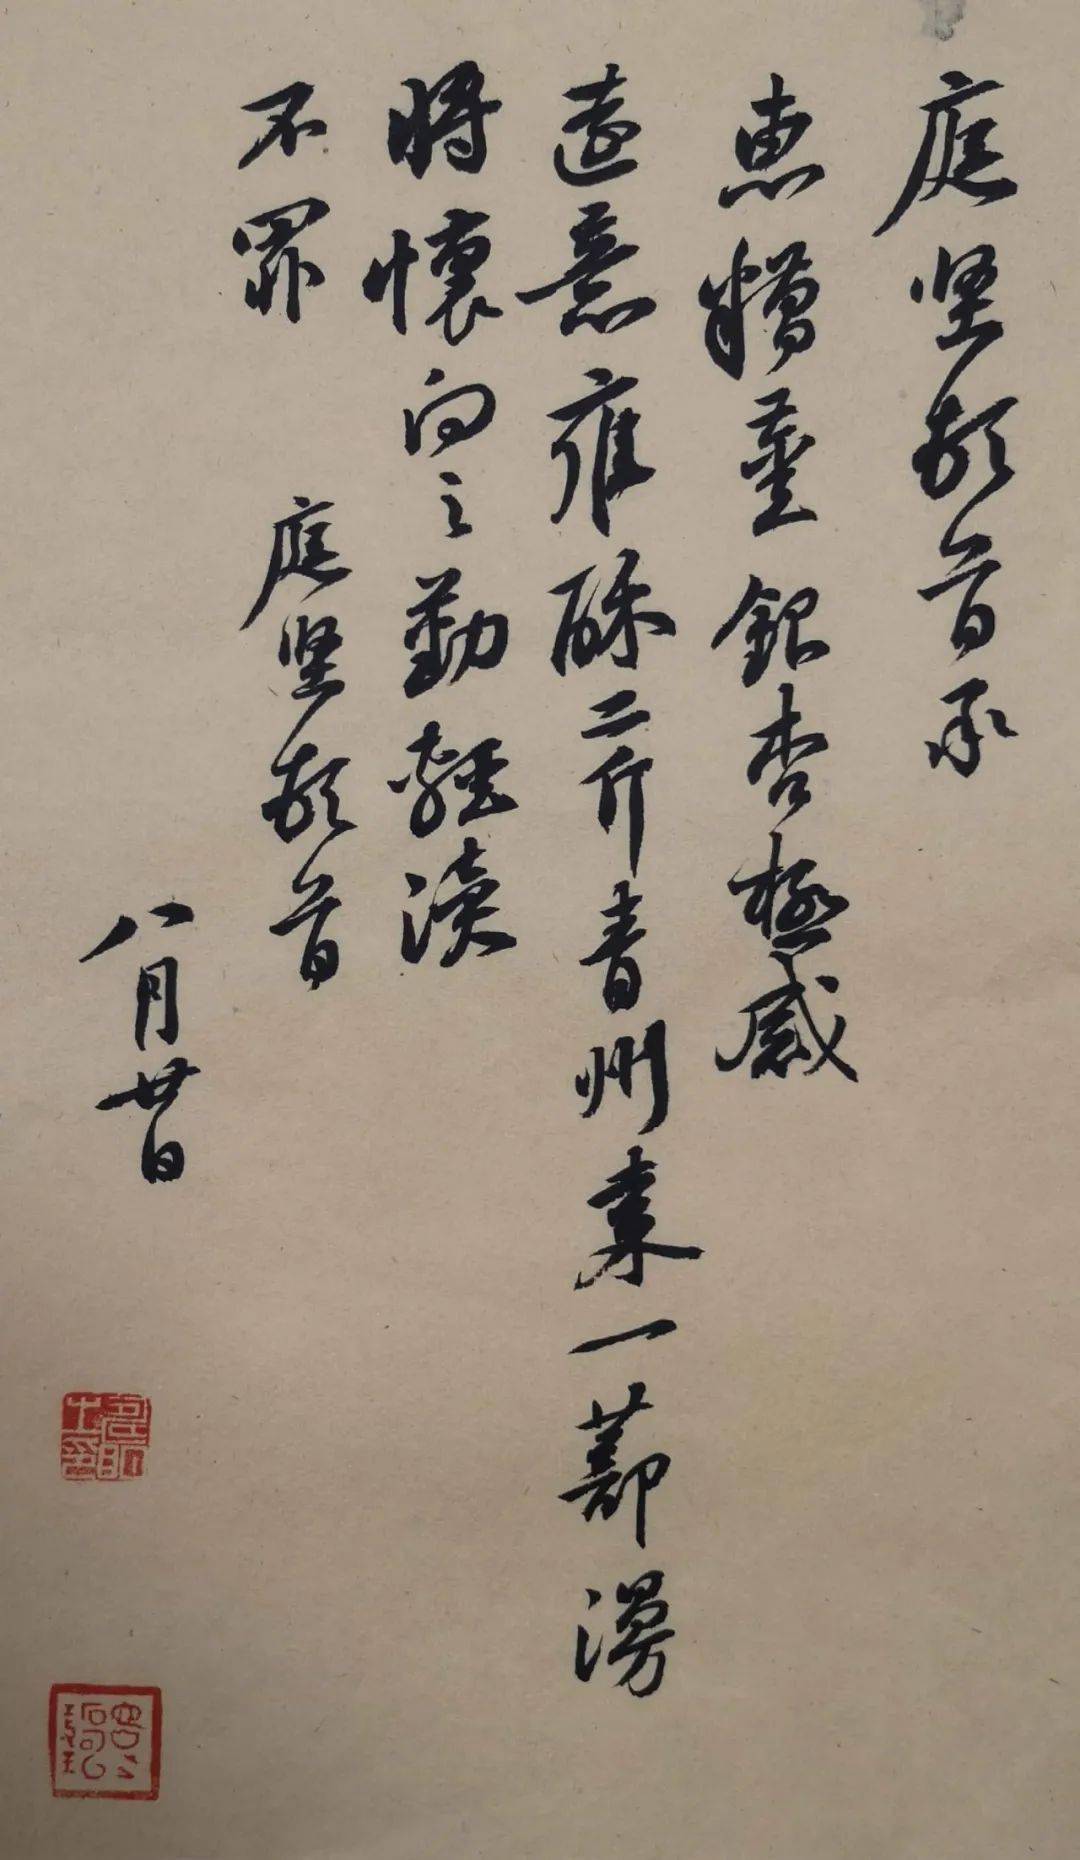 庭坚頓首承
惠糟薑銀杏極感
遠意雍酥二斤青州棗一蔀漫
將懷向之勤輕瀆
不罪
庭坚頓首
八月廿日